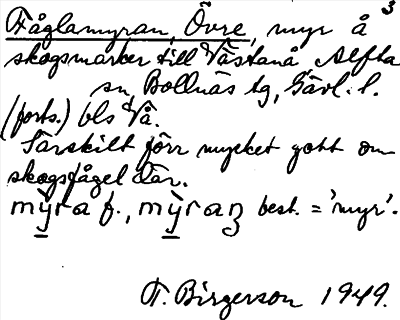 3
Fåglamyran, Övre, myr å
skogsmarker till Västanå Alfta
sn, Bollnäs tg, Gävl. l.
(forts.) bls Vå.
Särskilt förr mycket gott om
skogsfågel där.
mỳra f., mỳraṇ best. = 'myr'.
T. Birgerson 1949.